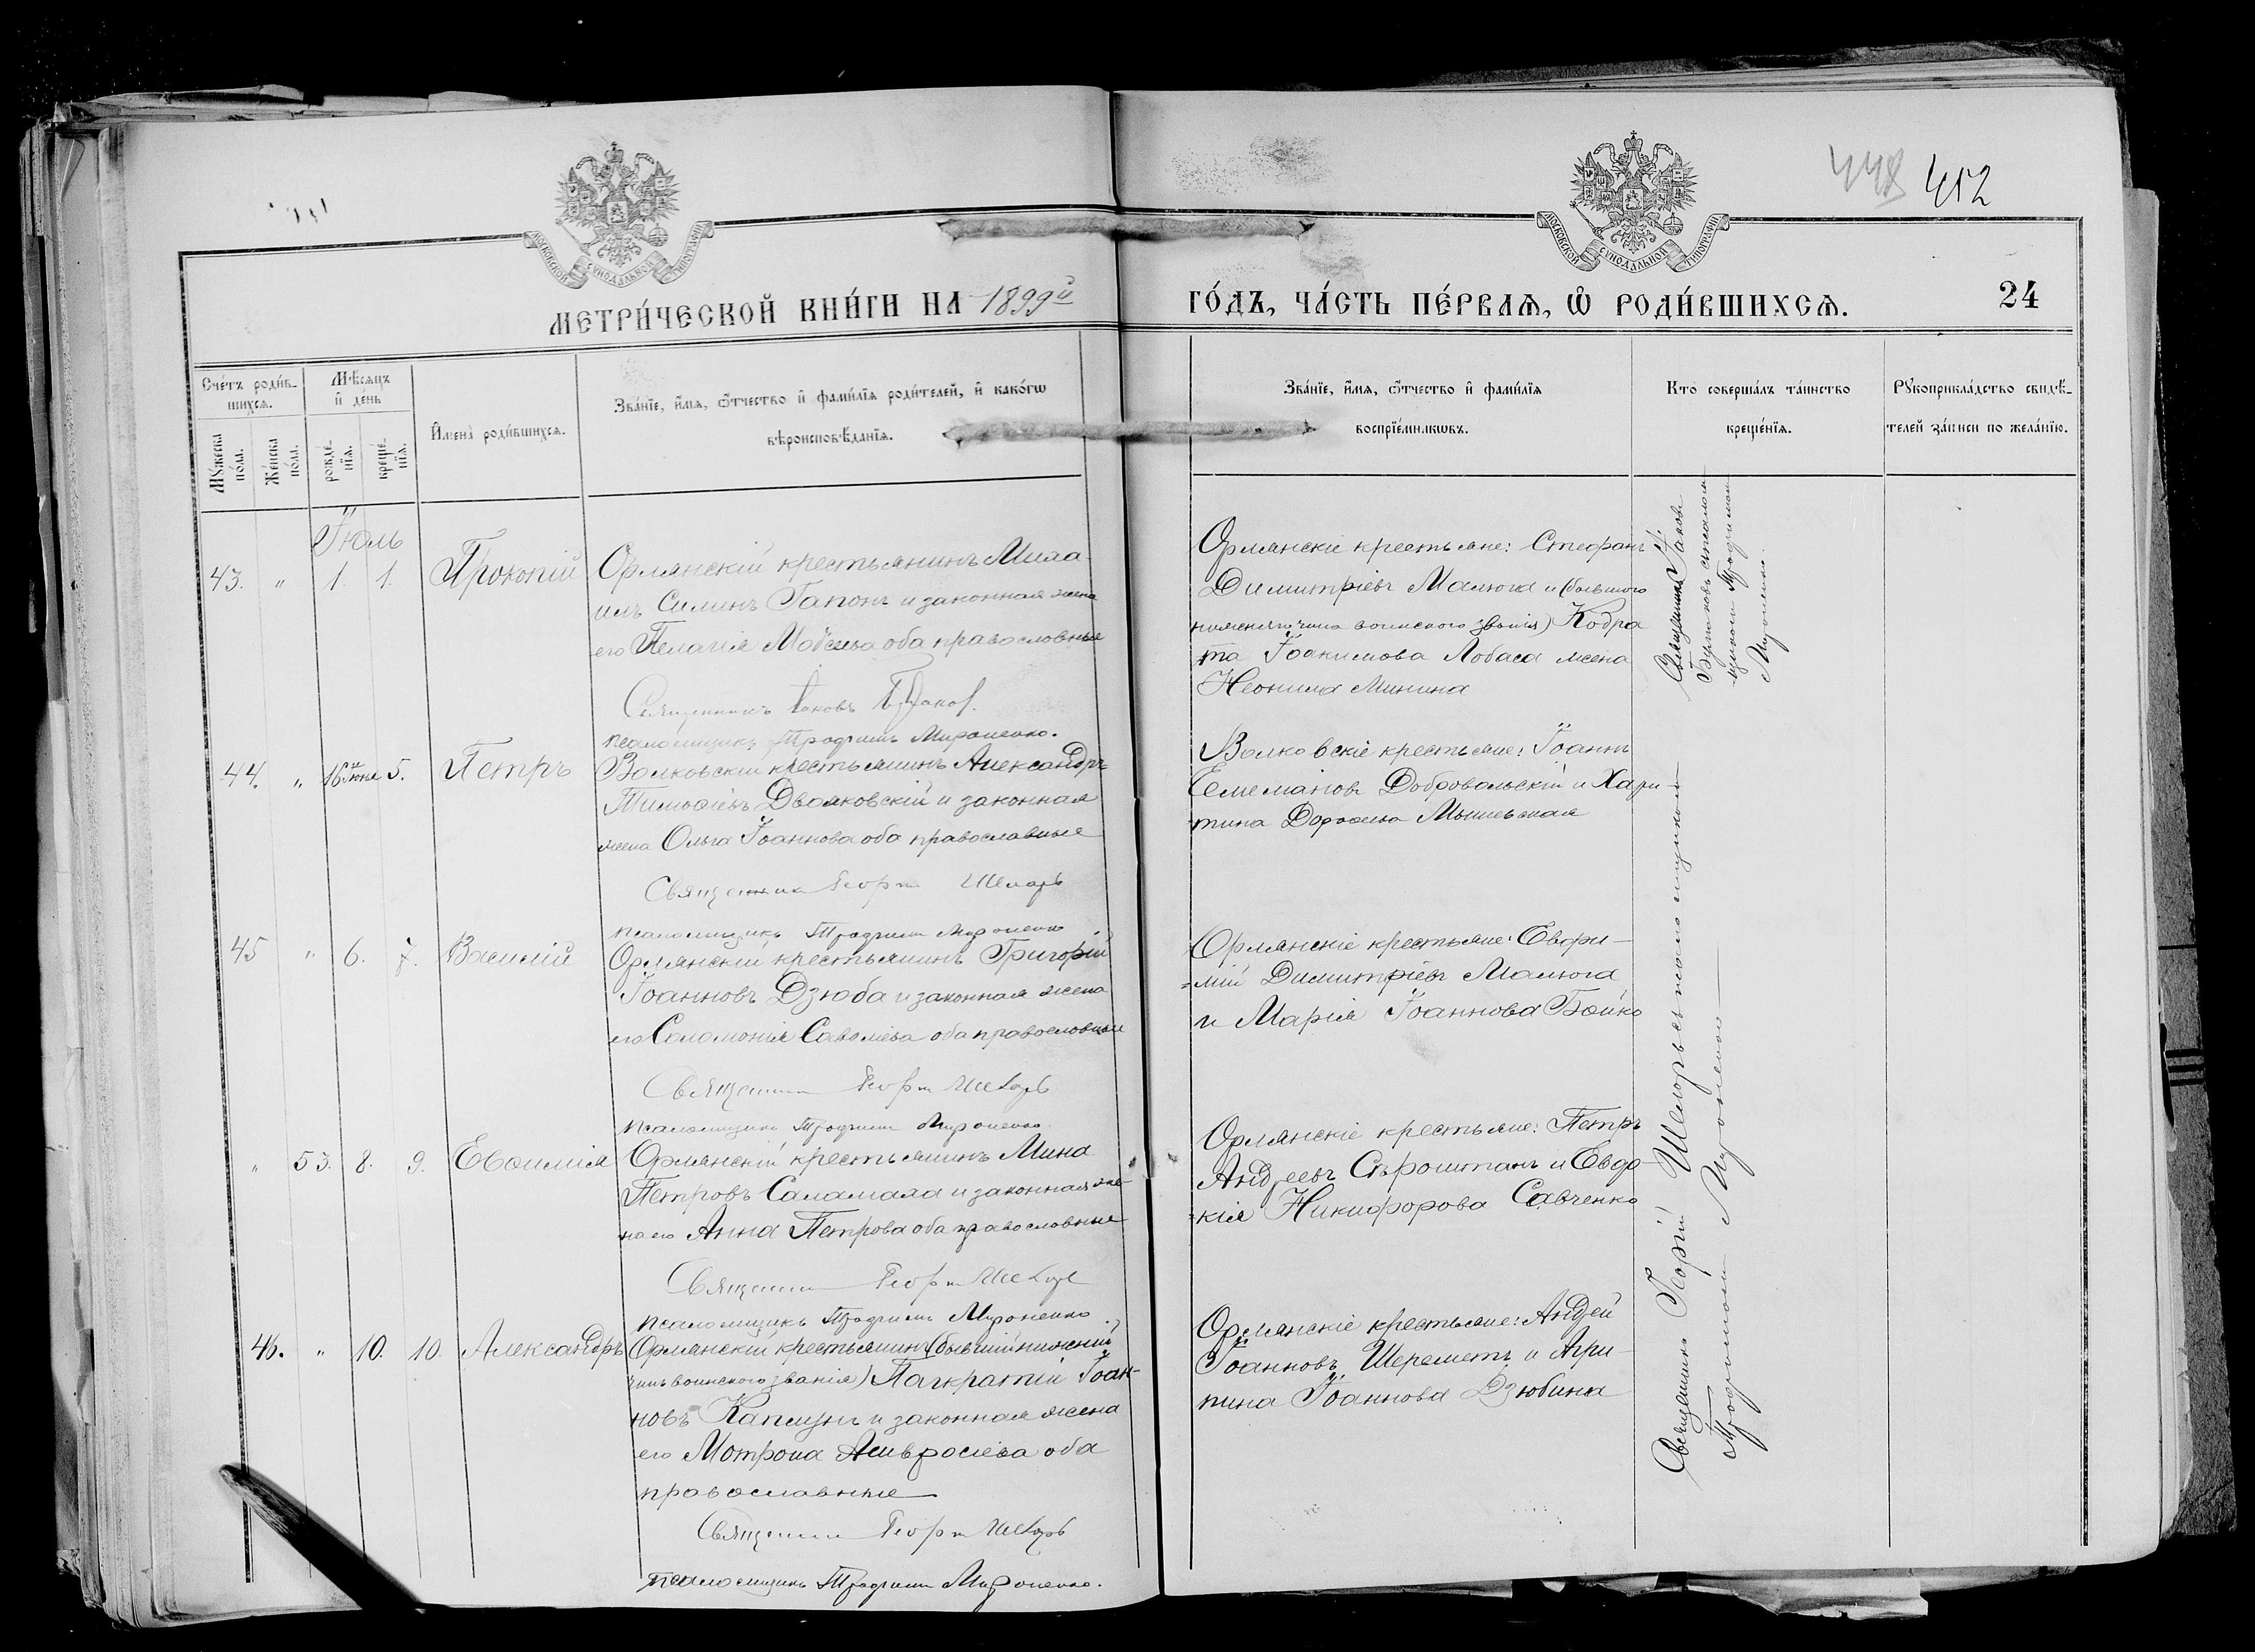 448 452
МОСКОВСКОЙ СѴНОДАЛЬНОЙ ТИПОГРАФІИ
МОСКОВСКОЙ СѴНОДАЛЬНОЙ ТИПОГРАФІИ
МЕТРИ́ЧЕСКОЙ КНИ́ГИ НА 1899й ГО́ДЪ, ЧА́СТЬ ПЕ́РВАѦ, Ѽ РОДИ́ВШИХСѦ. 24
Сче́тъ роди́в-
шихсѧ.
Мꙋ́жеска по́ла.
Же́нска по́ла.
Мѣ́сѧцъ
и҆ де́нь
рожде́нїѧ.
креще́нїѧ.
И҆мена̀ роди́вшихсѧ.
Зва́нїе, и҆́мѧ, ѻ҆́тчество и҆ фами́лїѧ роди́телей, и҆ како́гѡ
вѣроисповѣ́данїѧ.
Зва́нїе, и҆́мѧ, ѻ҆́тчество и҆ фами́лїѧ
воспрїе́мникѡвъ.
Кто̀ соверша́лъ та́инство
креще́нїѧ.
Рꙋкоприкла́дство свидѣ́-
телей за́писи по жела́нїю.
Іюль
43. " 1. 1. Прокопій
Орлянскій крестьянинъ Миха-
илъ Силинъ Гапонъ и законная жена
его Пелагія Моѵсеева оба православные
Священникъ Іаковъ
псаломщикъ Трофимъ Мироненко.
Орлянскіе крестьяне: Стефанъ
Димитріевъ Малюга и (бывшаго
нижняго чина воинского званія) Кодра
та Іоакимова Лобаса жена
Неонила Минина
Священникъ Іаковъ
съ псалом
щикомъ Трофимомъ
Мироненко.
44. " 16 Іюня 5. Петръ
Волковскій крестьянинъ Александръ
Тимоѳеевъ Двояковскій и законная
жена Ольга Іоаннова оба православные
Священникъ Георгій
псаломщикъ Трофимъ Мироненко
Волковскіе крестьяне: Іоаннъ
Емеліановъ Добровольскій и Хари-
тина Дороѳеева
45 " 6. 7. Василій
Орлянскій крестьянинъ Григорій
Іоанновъ Дзюба и законная жена
его Соломонія оба православные
Священникъ Георгій
псаломщикъ Трофимъ Мироненко.
Орлянскіе крестьяне: Евфи-
мій Димитріевъ Малюга
и Марія Іоаннова Бойко
" 53. 8. 9. Евѳимія
Орлянскій крестьянинъ Мина
Петровъ Саламаха и законная же-
на его Анна Петрова оба православные
Священникъ Георгій
псаломщикъ Трофимъ Мироненко
Орлянскіе крестьяне: Петръ
Андреевъ Сѣроштанъ и Евдо-
кія Никифорова Савченко
46. " 10. 10. Александръ
Орлянскій крестьянинъ (бывшій нижній
чинъ воинского званія) Панкратій Іоан-
новъ Каплунъ и законная жена
его Мотрона Амвросіева оба
православные
Священникъ Георгій
псаломщикъ Трофимъ Мироненко.
Орлянскіе крестьяне: Андрей
Іоанновъ Шереметъ и Агри-
пина Іоаннова Дзюбина
Священникъ Георгій съ псаломщикомъ
Трофимомъ Мироненко